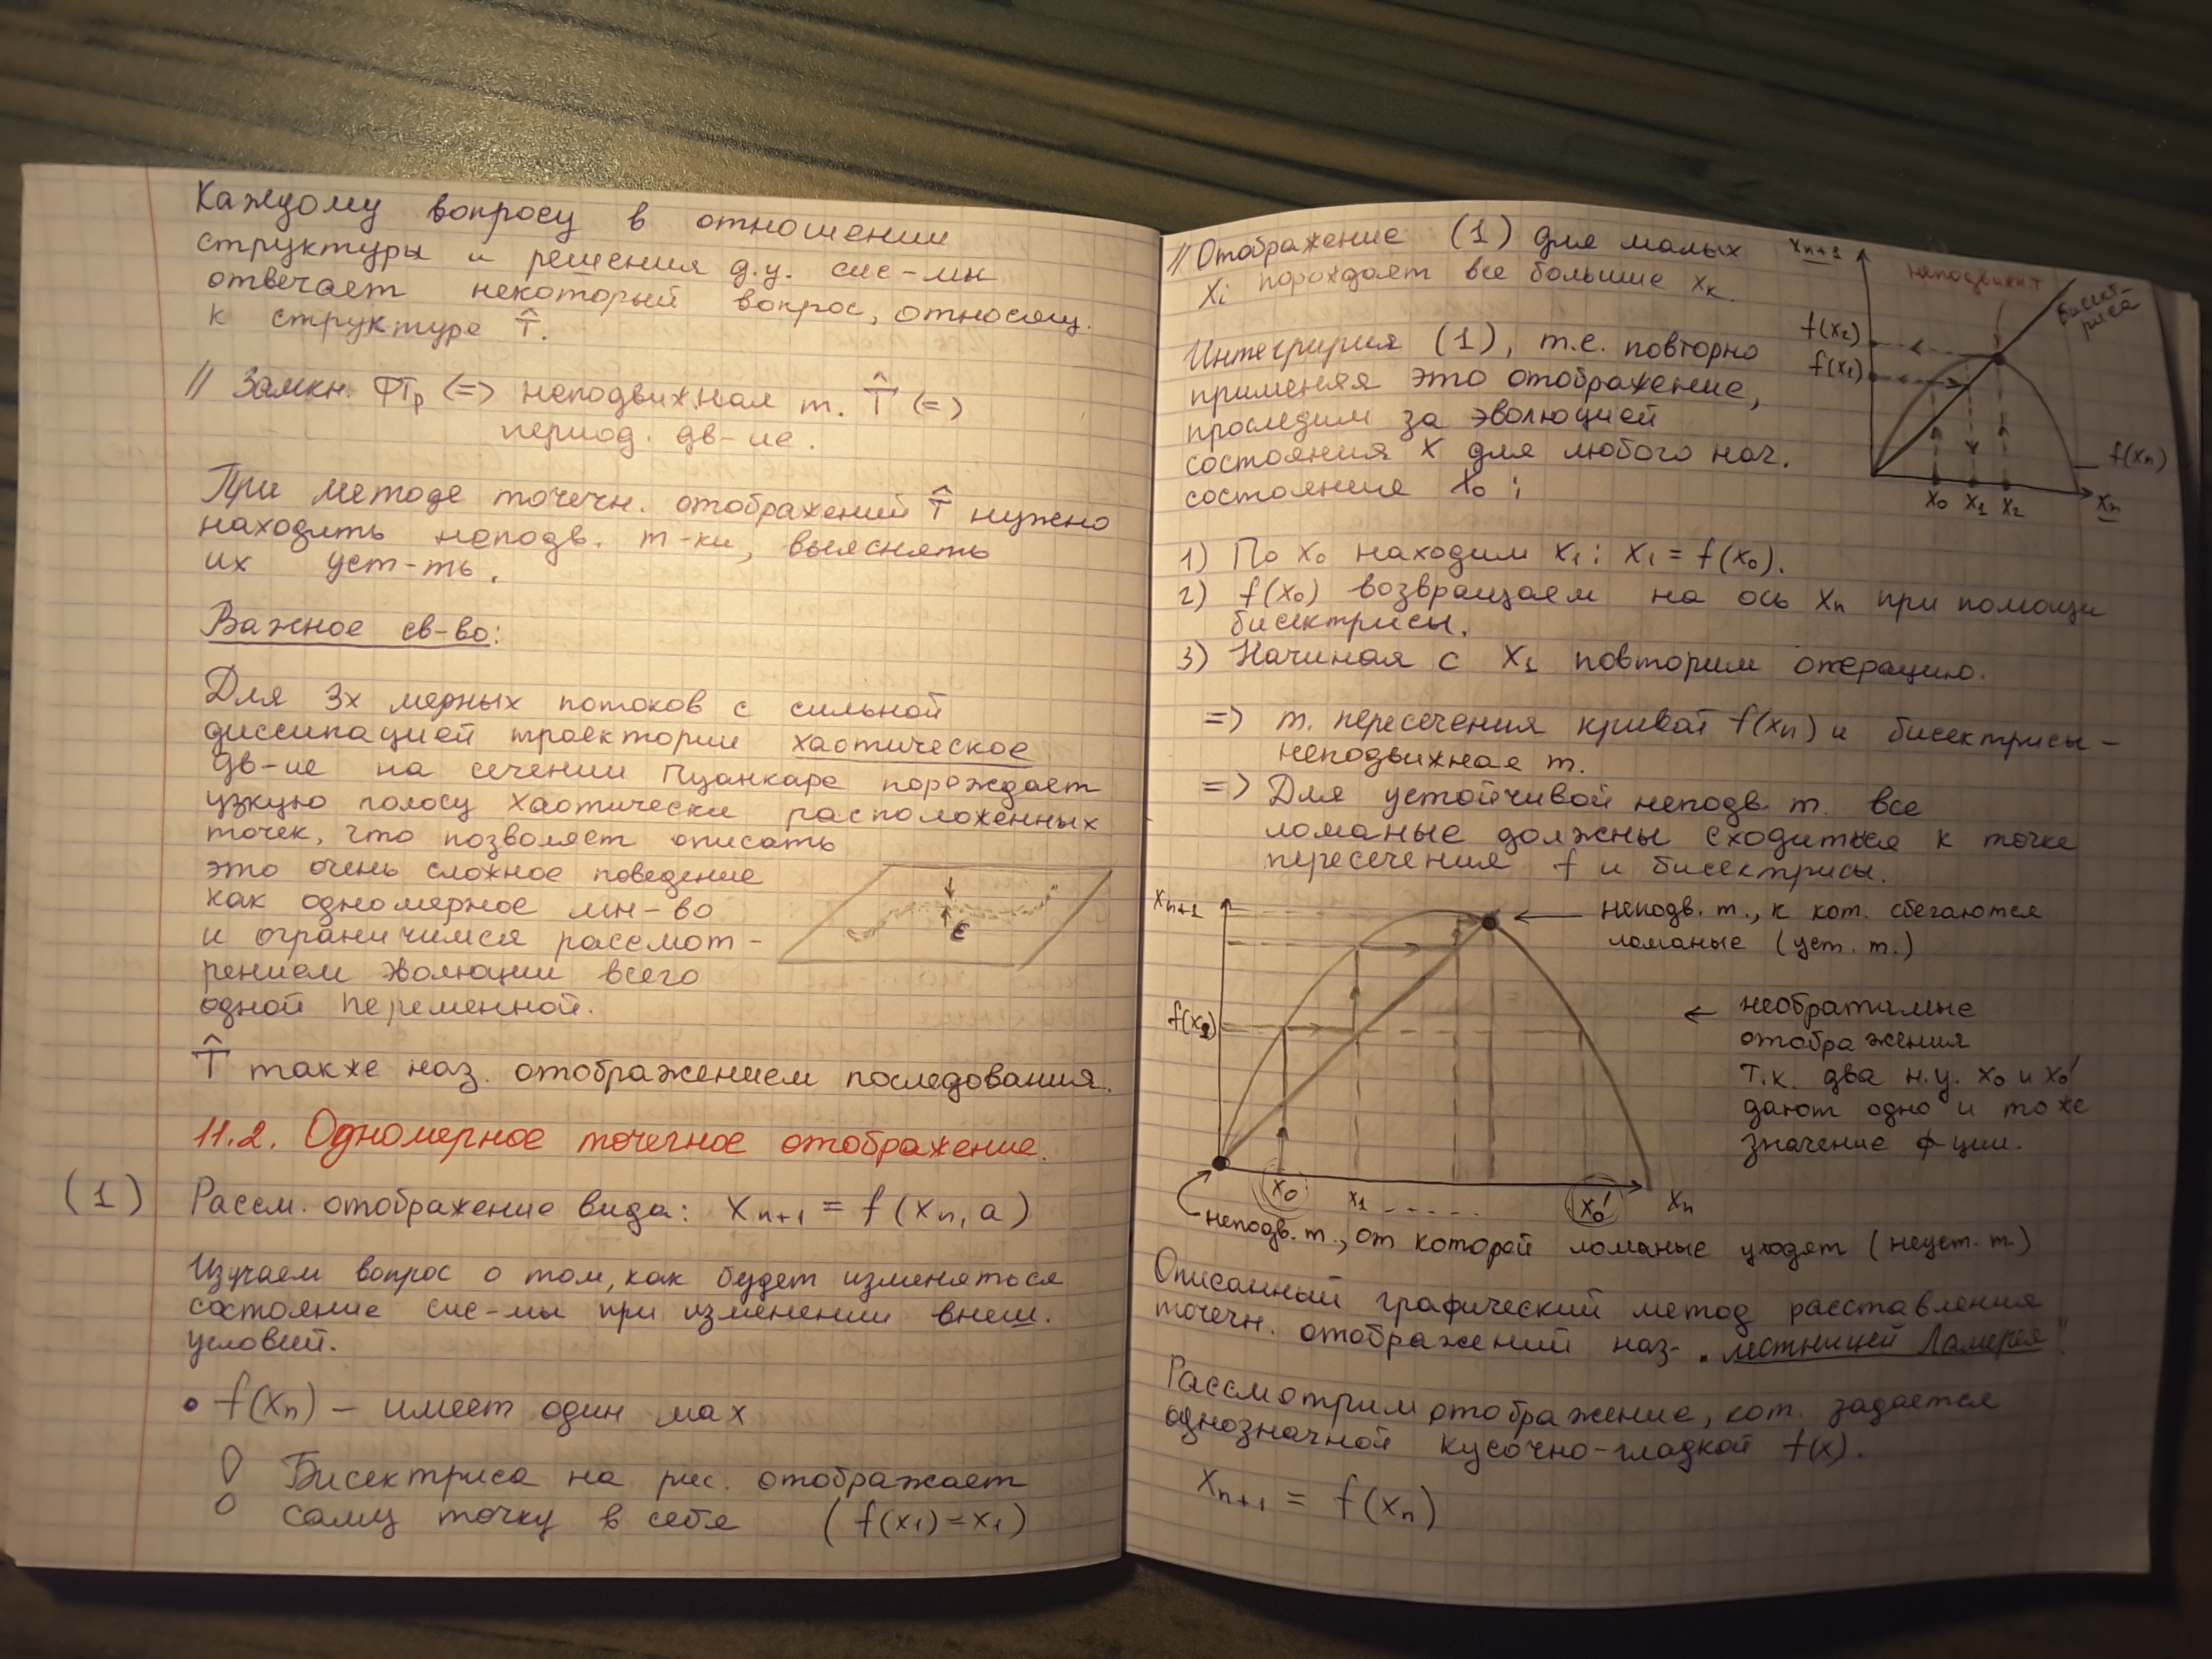 Каждому вопросу в отношении
структуры и решения д.у. сис-мы
отвечает некоторый вопрос, относящ.
к структуре T̂.
// Замкн. ФТр (=) неподвижная т. T̂ (=)
период. дв-ие.
При методе точечн. отображений T̂ нужно
находить неподв. т-ки, выяснять
их уст-ть.
Важное св-во:
Для 3х мерных потоков с сильной
диссипацией траектории хаотическое
дв-ие на сечении Пуанкаре порождает
узкую полосу хаотически расположенных
точек, что позволяет описать
это очень сложное поведение
как одномерное мн-во
и ограничимся рассмот-
рением эволюции всего
одной переменной.
ε
T̂ также наз. отображением последования.
11.2. Одномерное точечное отображение.
(1) Рассм. отображение вида: Xn+1 = f(Xn, a)
Изучаем вопрос о том, как будет изменяться
состояние сис-мы при изменении внеш.
условий.
• f(Xn) – имеет один max
! Бисектриса на рис. отображает
саму точку в себя (f(x1)=x1)
// Отображение (1) для малых
Xi порождает все большие Xk.
Xn+1
неподвижн т
бисект-
риса
f(x2)
f(x1)
f(xn)
x0 x1 x2 xn
Интегрируя (1), т.е. повторно
применяя это отображение,
проследим за эволюцией
состояния X для любого нач.
состояние X0 :
1) По X0 находим X1: X1 = f(X0).
2) f(X0) возвращаем на ось Xn при помощи
бисектрисы.
3) Начиная с X1 повторим операцию.
=> т. пересечения кривой f(Xn) и бисектрисы –
неподвижная т.
=> Для устойчивой неподв. т. все
ломаные должны сходиться к точке
пересечения f и бисектрисы.
Xn+1
← неподв. т., к кот. сбегаются
ломаные (уст. т.)
← необратимые
отображения
Т.к. два н.у. X0 и X0'
дают одно и тоже
значение ф-ции.
x0 x1 ------ x0' Xn
неподв. т., от которой ломаные уходят (неуст. т.)
Описанный графический метод расставления
точечн. отображений наз- „лестницей Ламерея"
Рассмотрим отображение, кот. задается
однозначной кусочно-гладкой f(x).
Xn+1 = f(Xn)